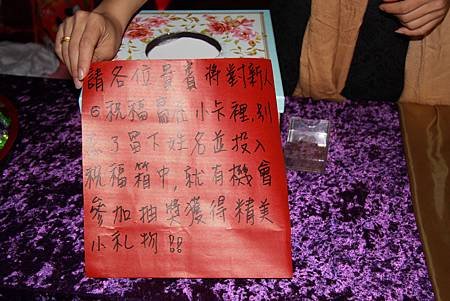 請各位貴賓將對新人
の祝福寫在小卡裡,別
忘了留下姓名並投入
祝福箱中,就有機會
參加抽獎獲得精美
小礼物